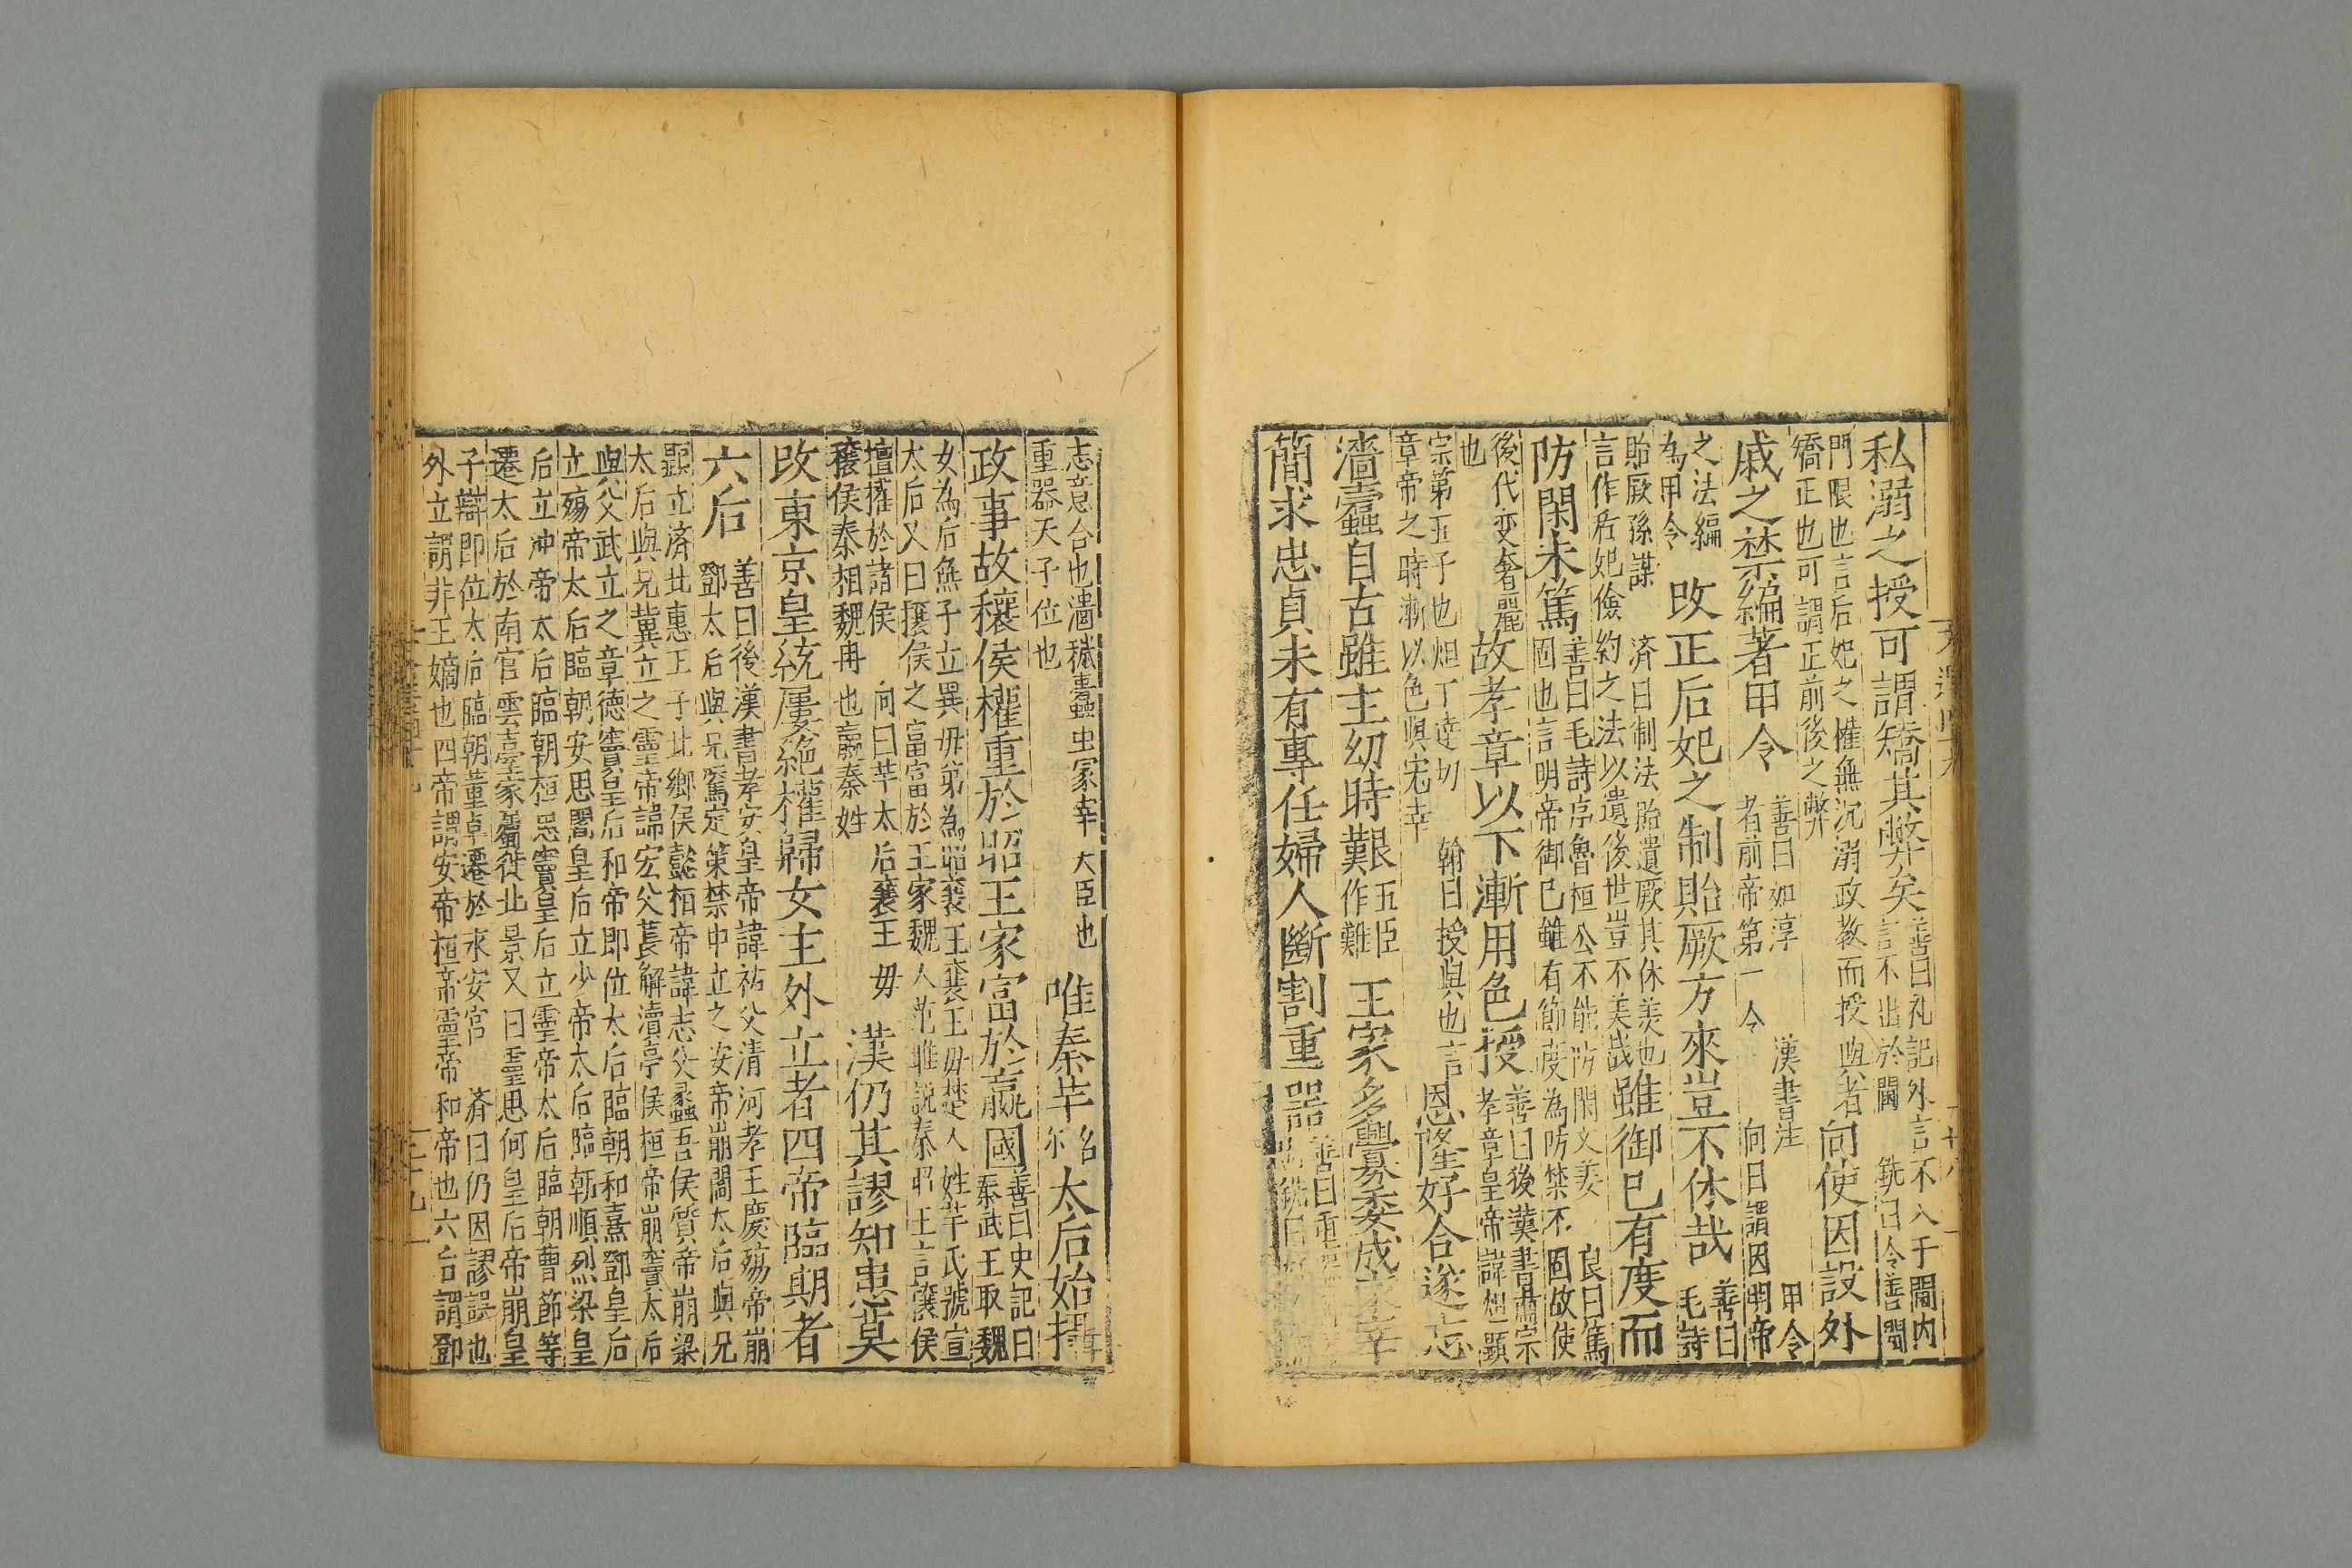 私溺之授可謂矯其弊矣善曰礼記外言不入于閫内
言不出於閫 銑曰令善閫
門限也言后妃之權無沉溺政教而授與者
矯正也可謂正前後之弊
向使因設外
戚之禁編著甲令善曰如淳漢書注甲令
者前帝第一令向曰謂因明帝
之法編
為甲令
改正后妃之制貽厥方來豈不休哉善曰毛詩
貽厥孫謀濟曰制法胎遺厥其休美也
言作后妃儉約之法以遺後世豈不美哉
雖御已有度而
防閑未篤善曰毛詩序魯桓公不能防閑文姜良曰篤
固也言明帝御已雖有節度為防禁不固故使
後代变奢麗
也
故孝章以下漸用色授善曰後漢書肅宗
孝章皇帝諱炟顯
宗第五子也炟丁達切翰曰授與也言
章帝之時漸以色與宠幸
恩隆好合遂忘
淄蠹自古雖主幼時艱五臣
作難
王家多釁
簡求忠貞未有專任婦人斷割重器善曰重
志意合也淄穢蠹虫冢宰大臣也
重器天子位也
唯秦羋太后始攝
政事故穰侯權重於昭王家富於嬴國善曰史記曰
秦武王取魏
女為后無子立異毋弟為昭襄王襄王毋楚人姓羋氏號宣
太后又曰穰侯之富富於王家魏人范雎説秦昭王言穰侯
擅權於諸侯向曰羋太后襄王毋
穰侯秦相魏冉也嬴秦姓
漢仍其謬知患莫
改東京皇統屢絕權歸女主外立者四帝臨期者
六后善曰後漢書孝安皇帝諱祜父清河孝王慶殤帝崩
鄧太后與兄騭定策禁中立之安帝崩閻太后與兄
顯立済北惠王子北鄉侯懿桓帝諱志父蠡吾侯質帝崩梁
太后與兄冀立之靈帝諱宏父萇解瀆亭侯桓帝崩竇太后
與父武立之章德竇皇后和帝即位太后臨朝和熹鄧皇后
立殤帝太后臨朝安思閻皇后立少帝太后臨朝順烈梁皇
后立冲帝太后臨朝桓思竇皇后立靈帝太后臨朝曹節等
遷太后於南宫雲臺家屬徙北景又曰靈思何皇后帝崩皇
子辯即位太后臨朝董卓遷於永安宫済曰仍因謬誤也
外立謂非王嫡也四帝謂安帝桓帝靈帝和帝也六后謂鄧